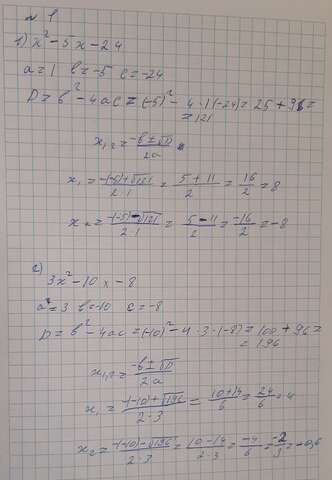 № 1
1) x² - 5x - 24
a = 1 b = -5 c = -24
D = b² - 4ac = (-5)² - 4·1(-24) = 25 + 96 =
= 121
x₁,₂ = -b ± √D / 2a
x₁ = -(-5)+√121 / 2·1 = 5 + 11 / 2 = 16 / 2 = 8
x₂ = -(-5)-√121 / 2·1 = 5 - 11 / 2 = -16 / 2 = -8
2)
3x² - 10x - 8
a = 3 b = -10 c = -8
D = b² - 4ac = (-10)² - 4·3·(-8) = 100 + 96 =
= 196
x₁,₂ = -b ± √D / 2a
x₁ = -(-10)+√196 / 2·3 = 10+14 / 6 = 24 / 6 = 4
x₂ = -(-10)-√196 / 2·3 = 10-14 / 2·3 = -4 / 6 = -2 / 3 = -0,6